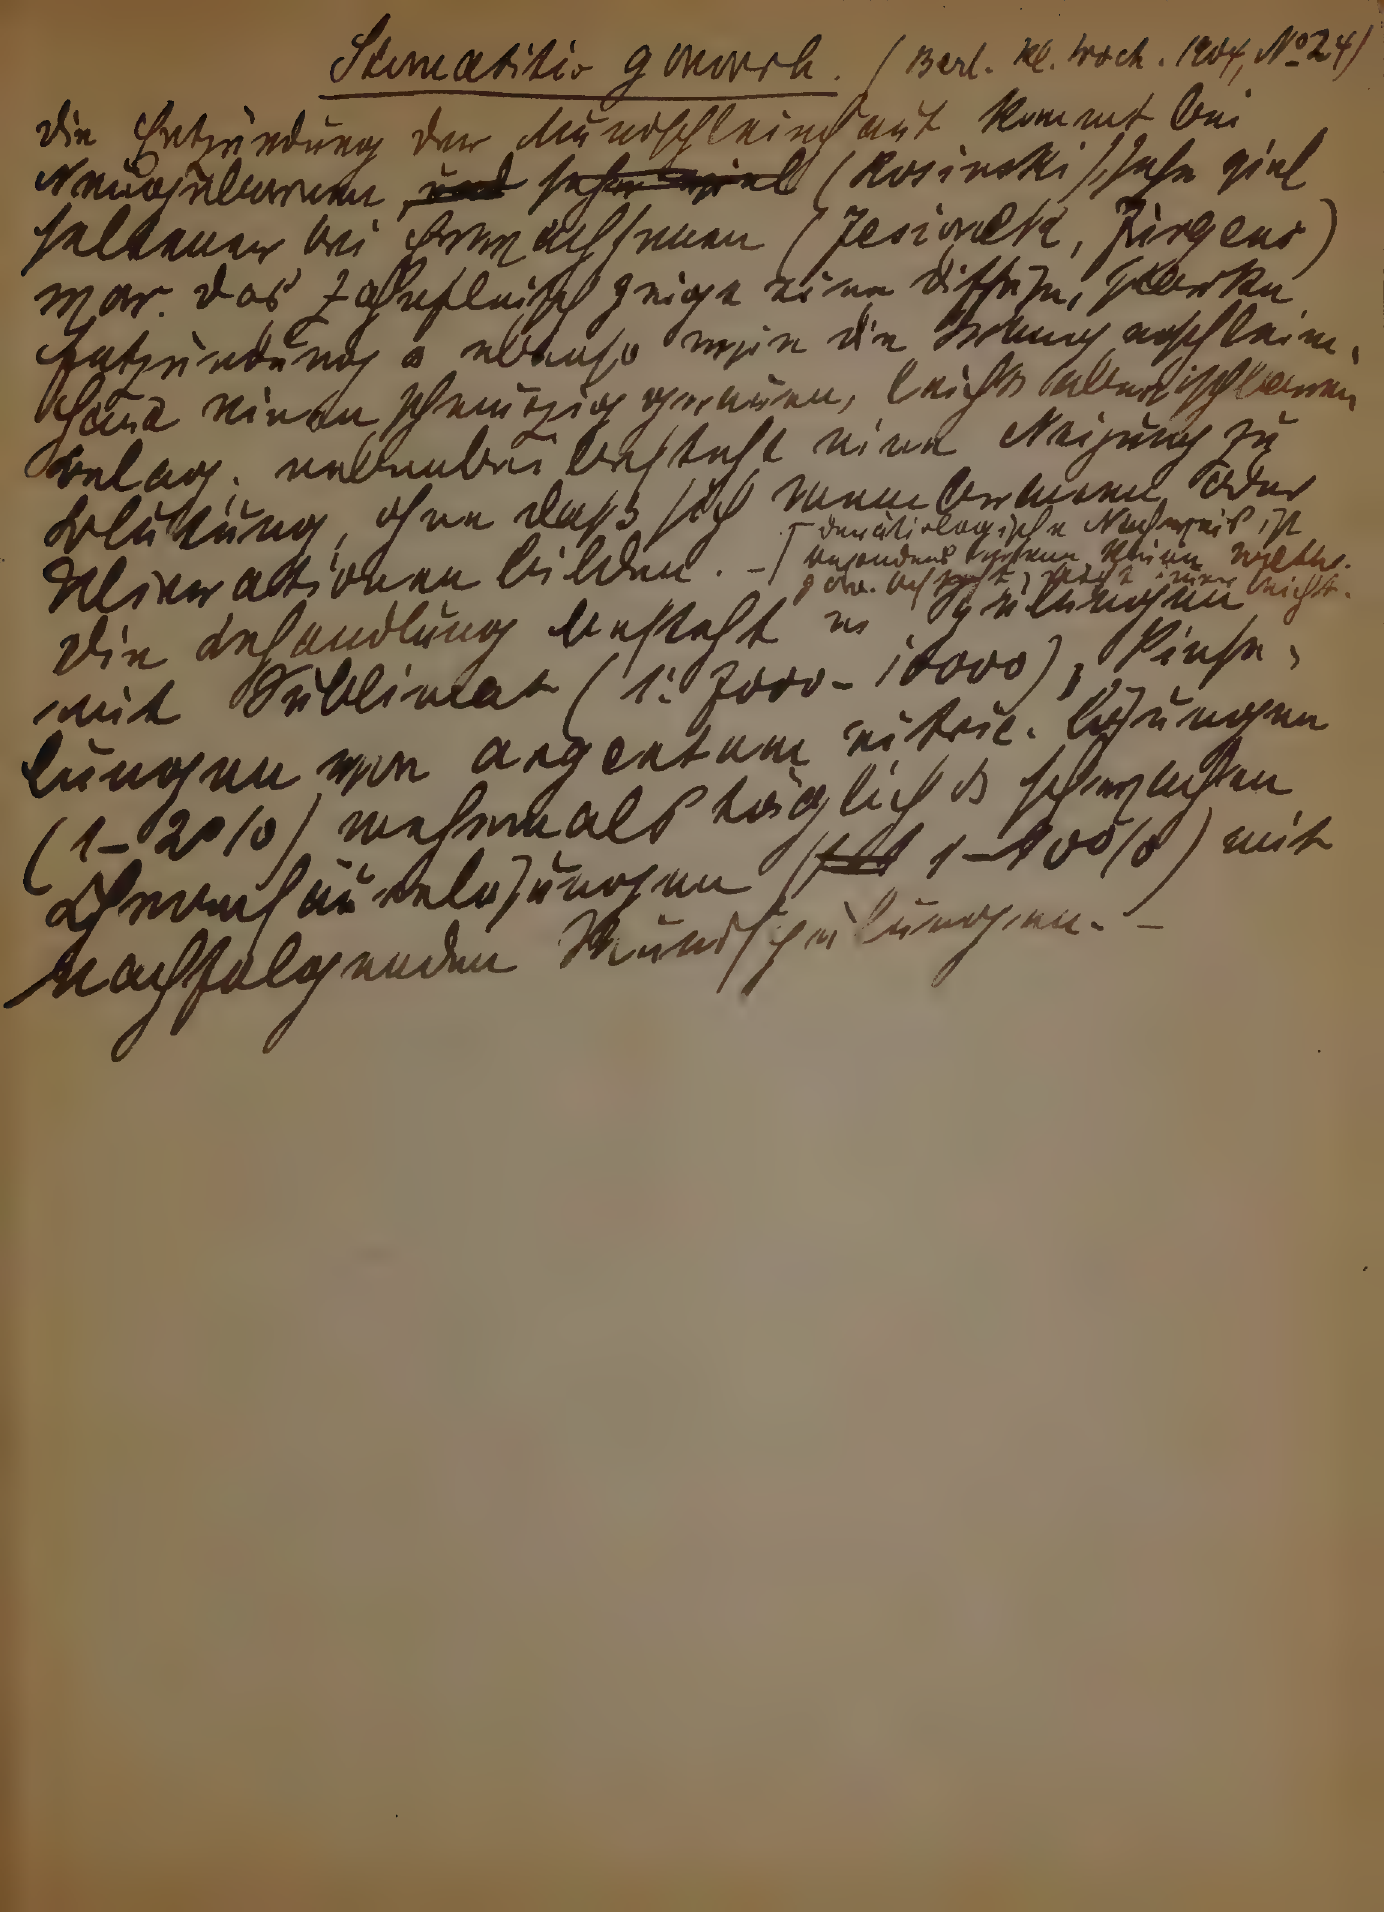 Stomatitis gonorrh. (Berl. kl. Woch. 1904, No 24)
Die Entzündung der Mundschleimhaut kommt bei
Neugeborenen, und sehr viel (Rosinski), sehr viel
seltener bei Erwachsenen (Jesionek, Jürgens)
vor. Das Zahnfleisch zeigt eine diffuse, starke
Entzündung ebenso wie die Wangenschleim-
haut einen schmutzig grauen, leicht abwischbaren
Belag. Nebenbei besteht eine Neigung zu
Blutung, ohne dass sich Membranen oder
Ulcerationen bilden. –
der ätiologische Nachweis ist
besonders wenn keine
gon. besteht, nicht immer leicht.
Die Behandlung besteht in Spülungen
mit Sublimat (1:7000–10000), Pinse-
lungen von argentum nitric. Lösungen
(1–2%) mehrmals täglich schwachen
Chromsäurelösungen (1–100%) mit
nachfolgenden Mundspülungen. –